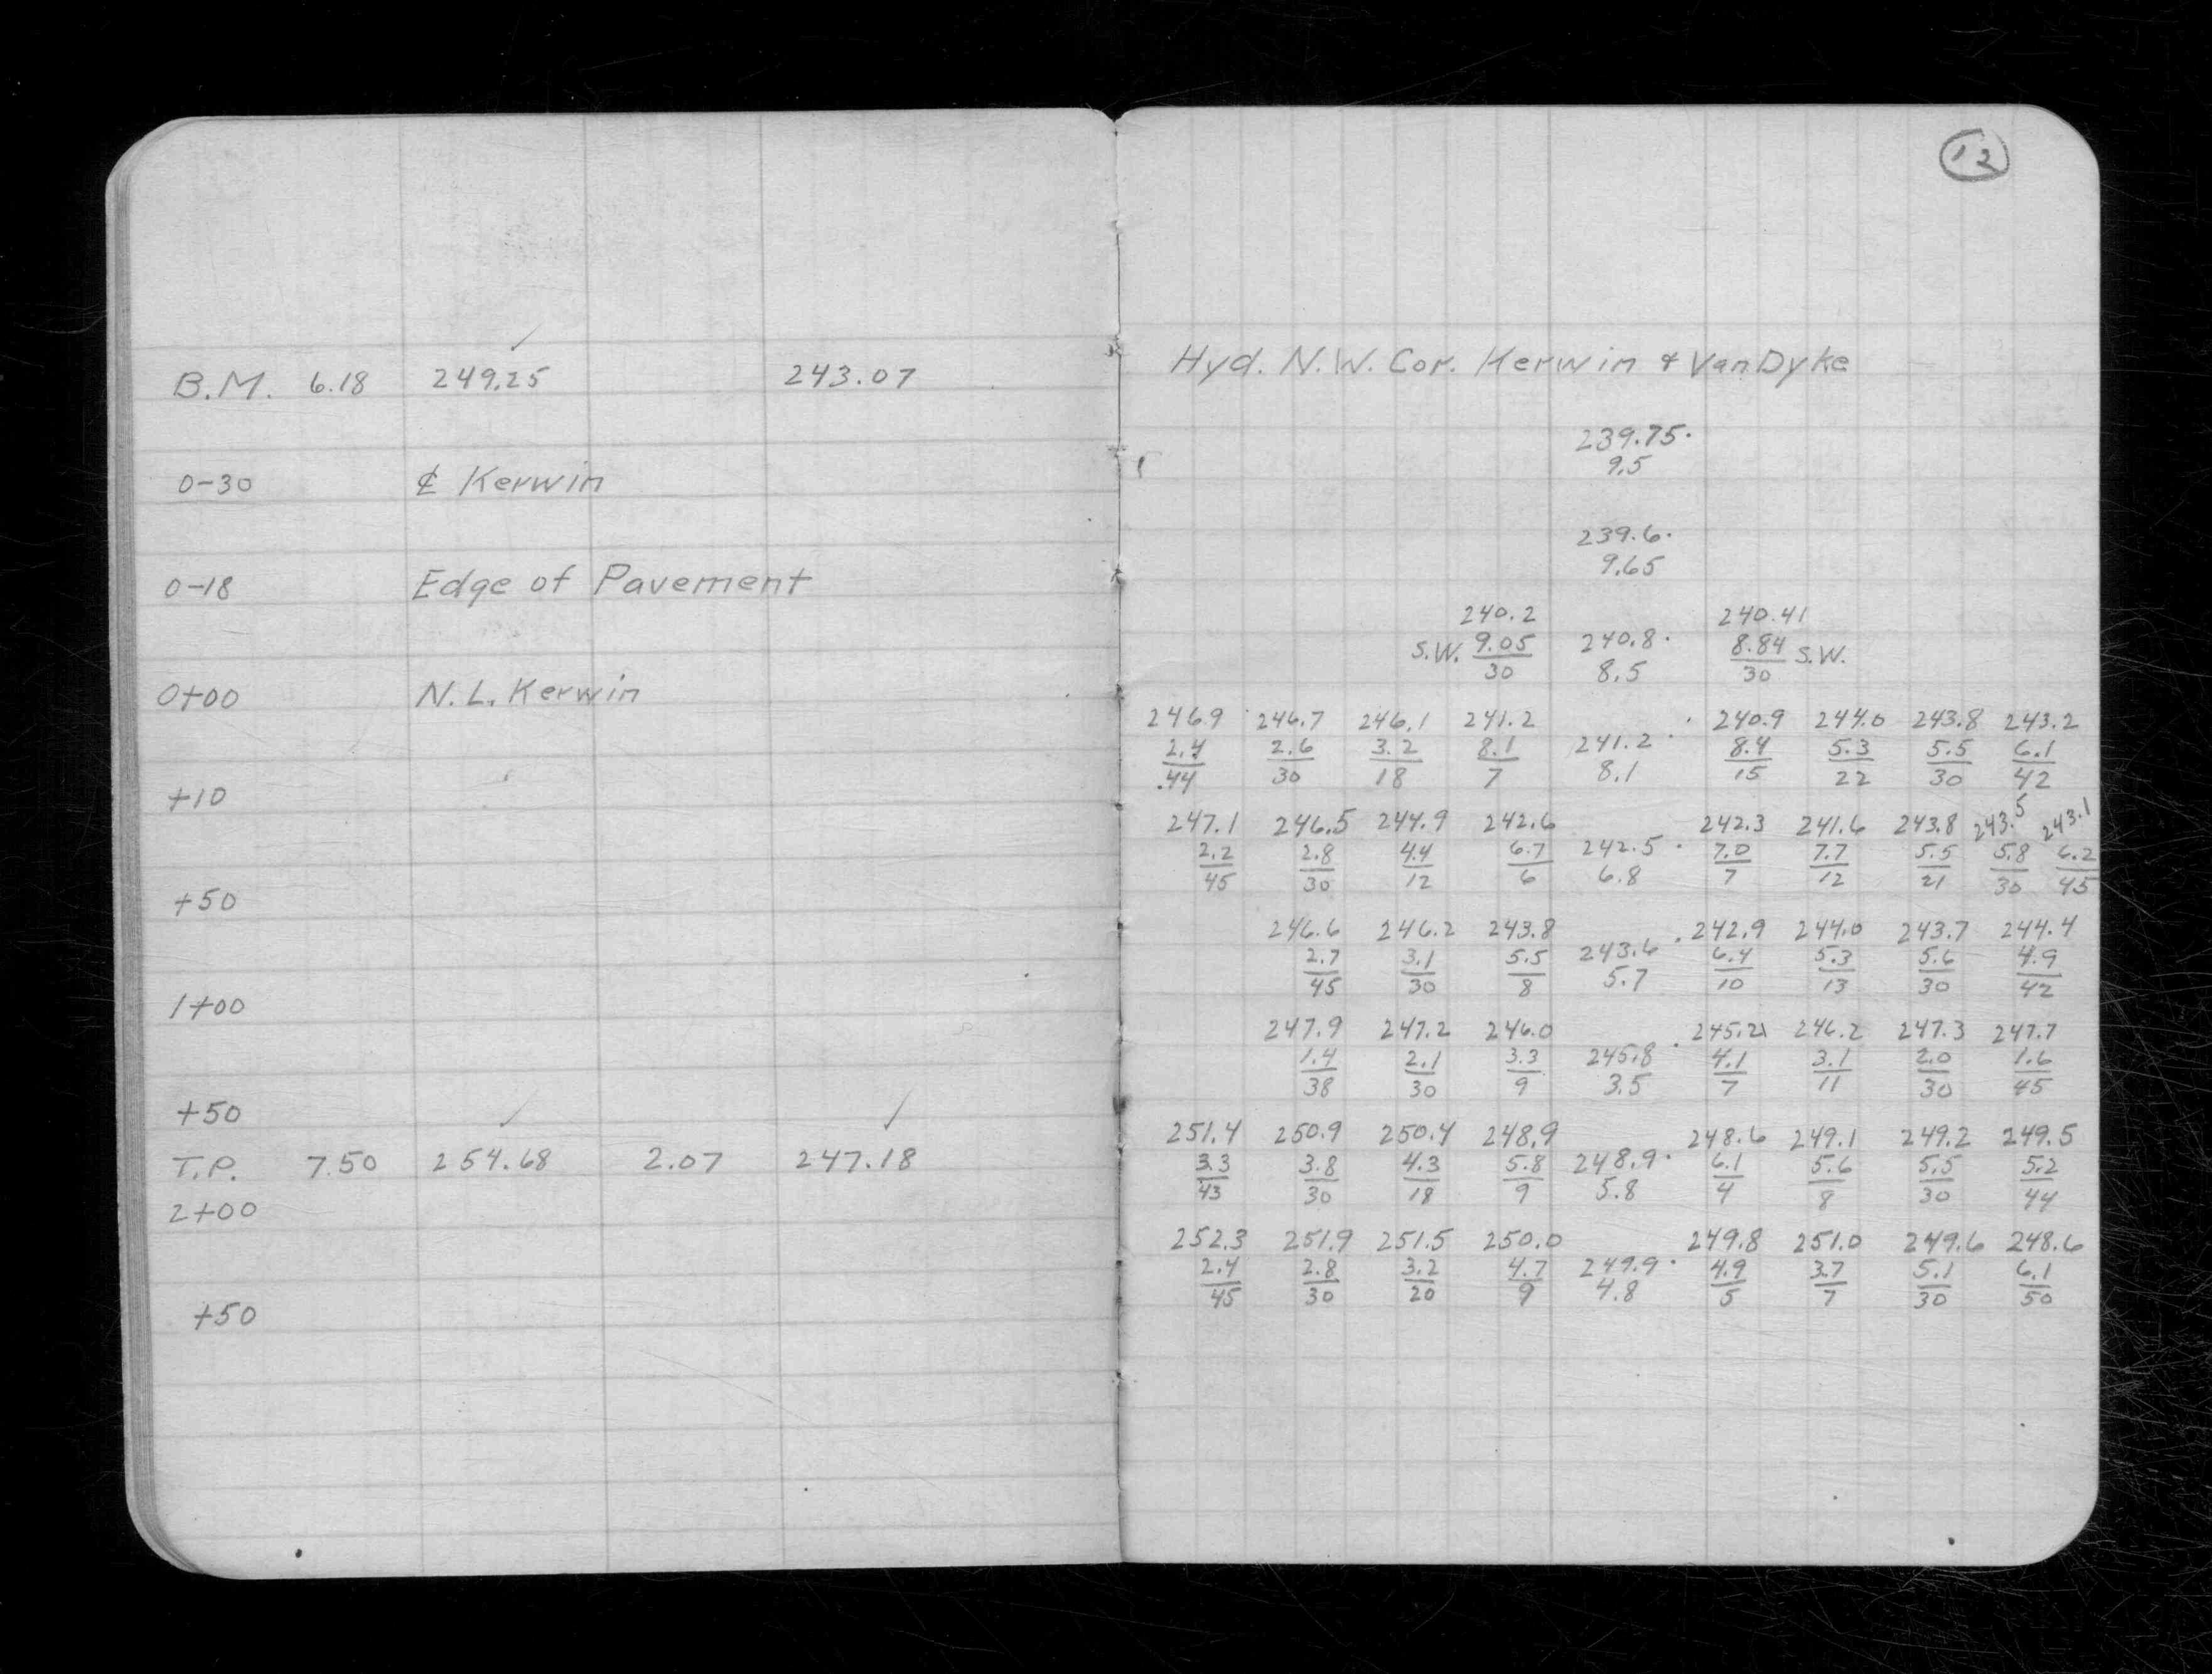 12
B.M. 6.18 249.25 243.07
0-30 ₵ Kerwin
0-18 Edge of Pavement
0+00 N.L. Kerwin
+10
+50
1+00
+50
T.P. 7.50 254.68 2.07 247.18
2+00
+50
Hyd. N.W. Cor. Kerwin & Van Dyke
239.75
9.5
239.6
9.65
240.2 240.41
S.W. 9.05 240.8 8.84 S.W.
30 8.5 30
246.9 246.7 246.1 241.2 240.9 244.0 243.8 243.2
2.4 2.6 3.2 8.1 241.2 8.4 5.3 5.5 6.1
44 30 18 7 8.1 15 22 30 42
247.1 246.5 244.9 242.6 242.3 241.6 243.8 243.5 243.1
2.2 2.8 4.4 6.7 242.5 7.0 7.7 5.5 5.8 6.2
45 30 12 6 6.8 7 12 21 30 45
246.6 246.2 243.8 242.9 244.0 243.7 244.4
2.7 3.1 5.5 243.6 6.4 5.3 5.6 4.9
45 30 8 5.7 10 13 30 42
247.9 247.2 246.0 245.2 246.2 247.3 247.7
1.4 2.1 3.3 245.8 4.1 3.1 2.0 1.6
38 30 9 3.5 7 11 30 45
251.4 250.9 250.4 248.9 248.6 249.1 249.2 249.5
3.3 3.8 4.3 5.8 248.9 6.1 5.6 5.5 5.2
43 30 18 9 5.8 4 8 30 44
252.3 251.9 251.5 250.0 249.8 251.0 249.6 248.6
2.4 2.8 3.2 4.7 249.9 4.9 3.7 5.1 6.1
45 30 20 9 4.8 5 7 30 50